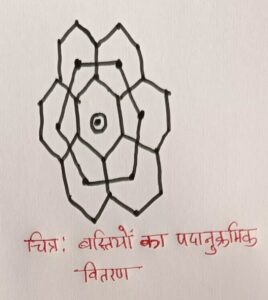 चित्र: बस्तियों का पदानुक्रमिक
वितरण